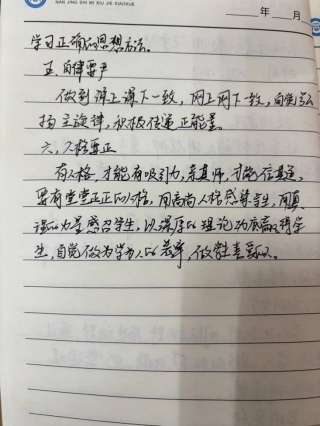 NAN JING SHI MI XIU JIE XIAOXUE
年 月
学习正确的思想方法。
五、自律要严
做到课上课下一致,网上网下一致,自觉弘
扬主旋律,积极传递正能量。
六、人格要正
有人格,才能有吸引力,亲其师,才能信其道,
要有堂堂正正的人格,用高尚人格感染学生,用真
理的力量感召学生,以深厚的理论功底赢得学
生,自觉做为学为人的表率,做让学生喜爱的人。